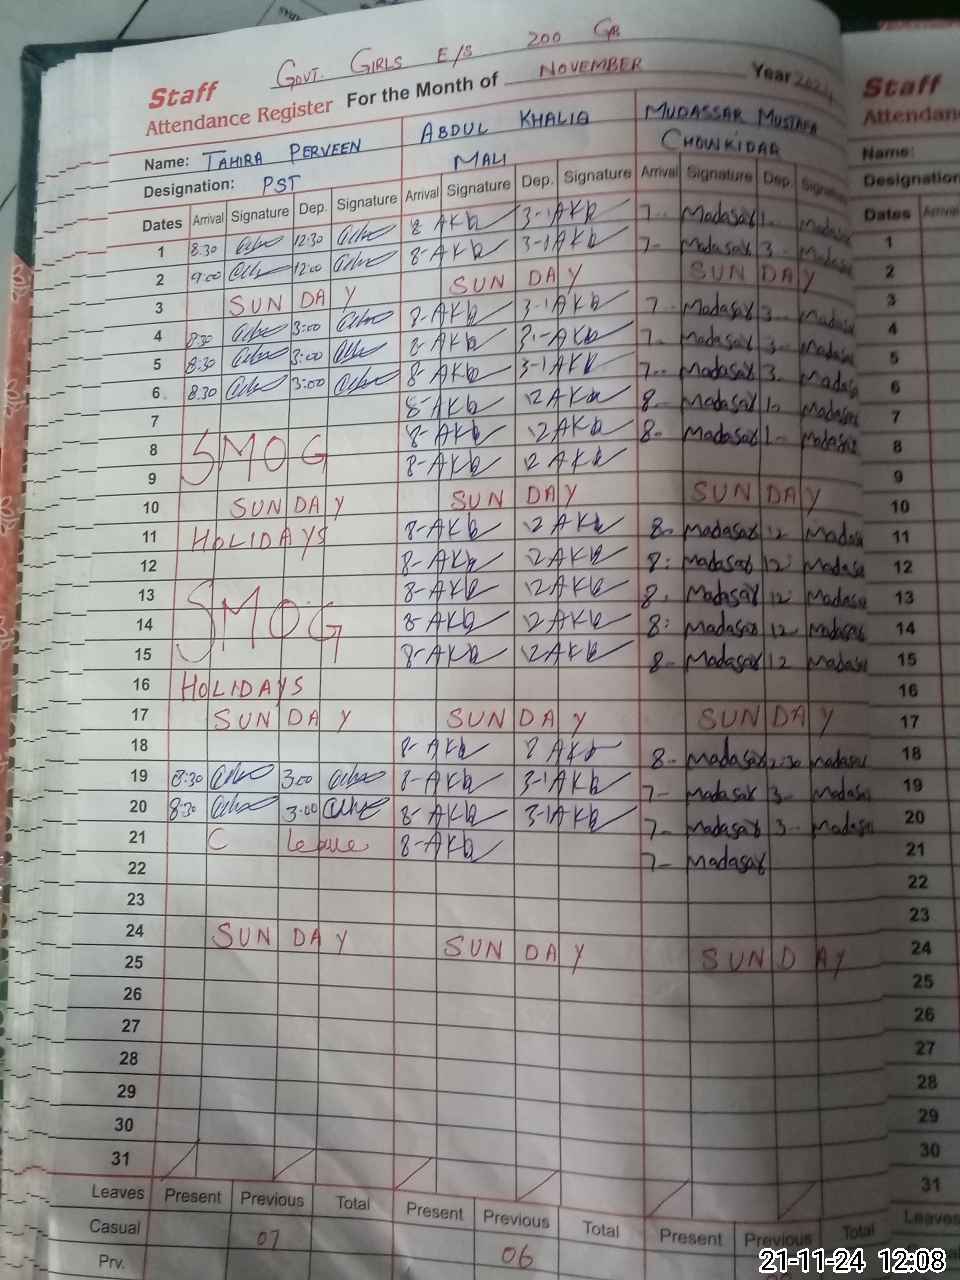 GOVT. GIRLS E/S 200 GB
Staff
Attendance Register For the Month of NOVEMBER Year 2024
Name: TAHIRA PERVEEN ABDUL KHALIQ MUDASSAR MUSTAFA
Designation: PST MALI CHOWKIDAR
Dates Arrival Signature Dep. Signature Arrival Signature Dep. Signature Arrival Signature Dep. Signature
1 8:30 12:30 8- AKb 3-1 AKb 7- Madasar 1- Madasar
2 9:00 12:00 8- AKb 3-1 AKb 7- Madasar 3- Madasar
3 SUNDAY SUNDAY SUNDAY
4 8:30 3:00 8- AKb 3-1 AKb 7- Madasar 3- Madasar
5 8:30 3:00 8- AKb 3-1 AKb 7- Madasar 3- Madasar
6 8:30 3:00 8- AKb 3-1 AKb 7- Madasar 3- Madasar
7 8- AKb 12 AKb 8- Madasar 1- Madasar
8 SMOG 8- AKb 12 AKb 8- Madasar 1- Madasar
9 8- AKb 12 AKb
10 SUNDAY SUNDAY SUNDAY
11 HOLIDAYS 8- AKb 12 AKb 8- Madasar 12 Madasar
12 8- AKb 12 AKb 8: Madasar 12 Madasar
13 8- AKb 12 AKb 8. Madasar 12 Madasar
14 SMOG 8- AKb 12 AKb 8: Madasar 12- Madasar
15 8- AKb 12 AKb 8- Madasar 12 Madasar
16 HOLIDAYS
17 SUNDAY SUNDAY SUNDAY
18 8- AKb 2 AKb 8- Madasar 2:30 Madasar
19 8:30 3:00 8- AKb 3-1 AKb 7- Madasar 3- Madasar
20 8:30 3:00 8- AKb 3-1 AKb 7- Madasar 3- Madasar
21 C Leave 8- AKb 7- Madasar
22
23
24 SUNDAY SUNDAY SUNDAY
25
26
27
28
29
30
31
Leaves Present Previous Total Present Previous Total Present Previous Total
Casual 07 06
Prv.
Staff
Attendance
Name:
Designation
Dates Arrival
1
2
3
4
5
6
7
8
9
10
11
12
13
14
15
16
17
18
19
20
21
22
23
24
25
26
27
28
29
30
31
Leaves
21-11-24 12:08